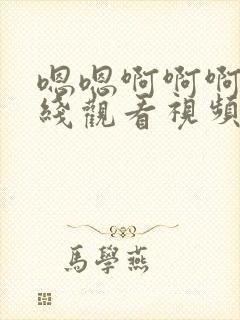 嗯嗯啊啊啊
綫觀看視頻
馬學燕